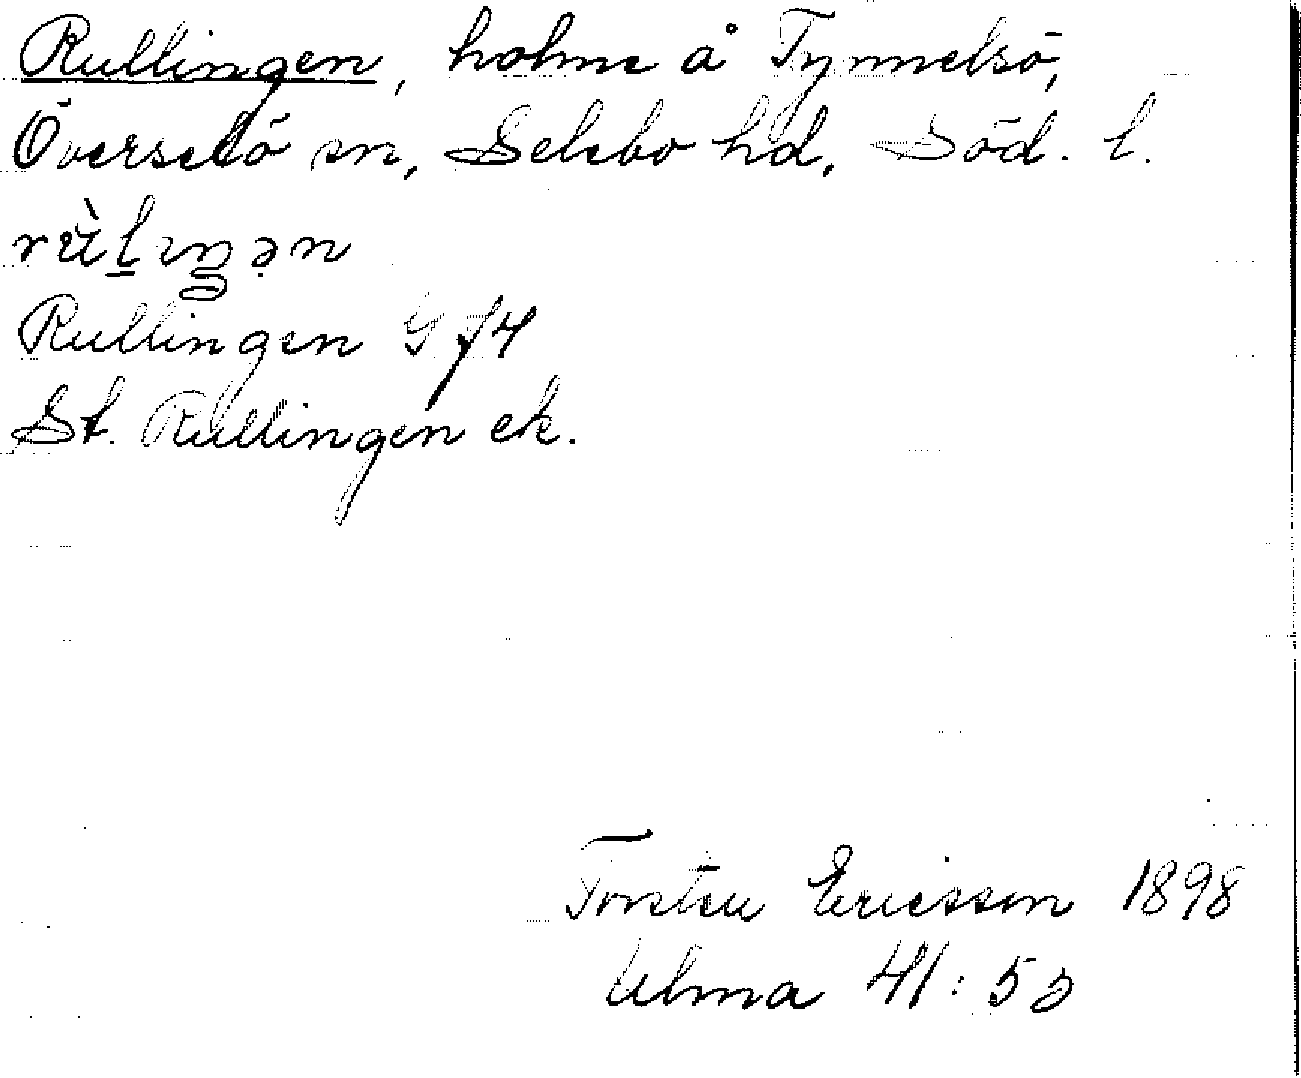 Rullingen, holme å Tynnelsö,
Överselö sn, Selebo hd, Söd. l.
Rullingen G f4
St. Rullingen ek.
Torsten Ericsson 1898
Ulma 41:55